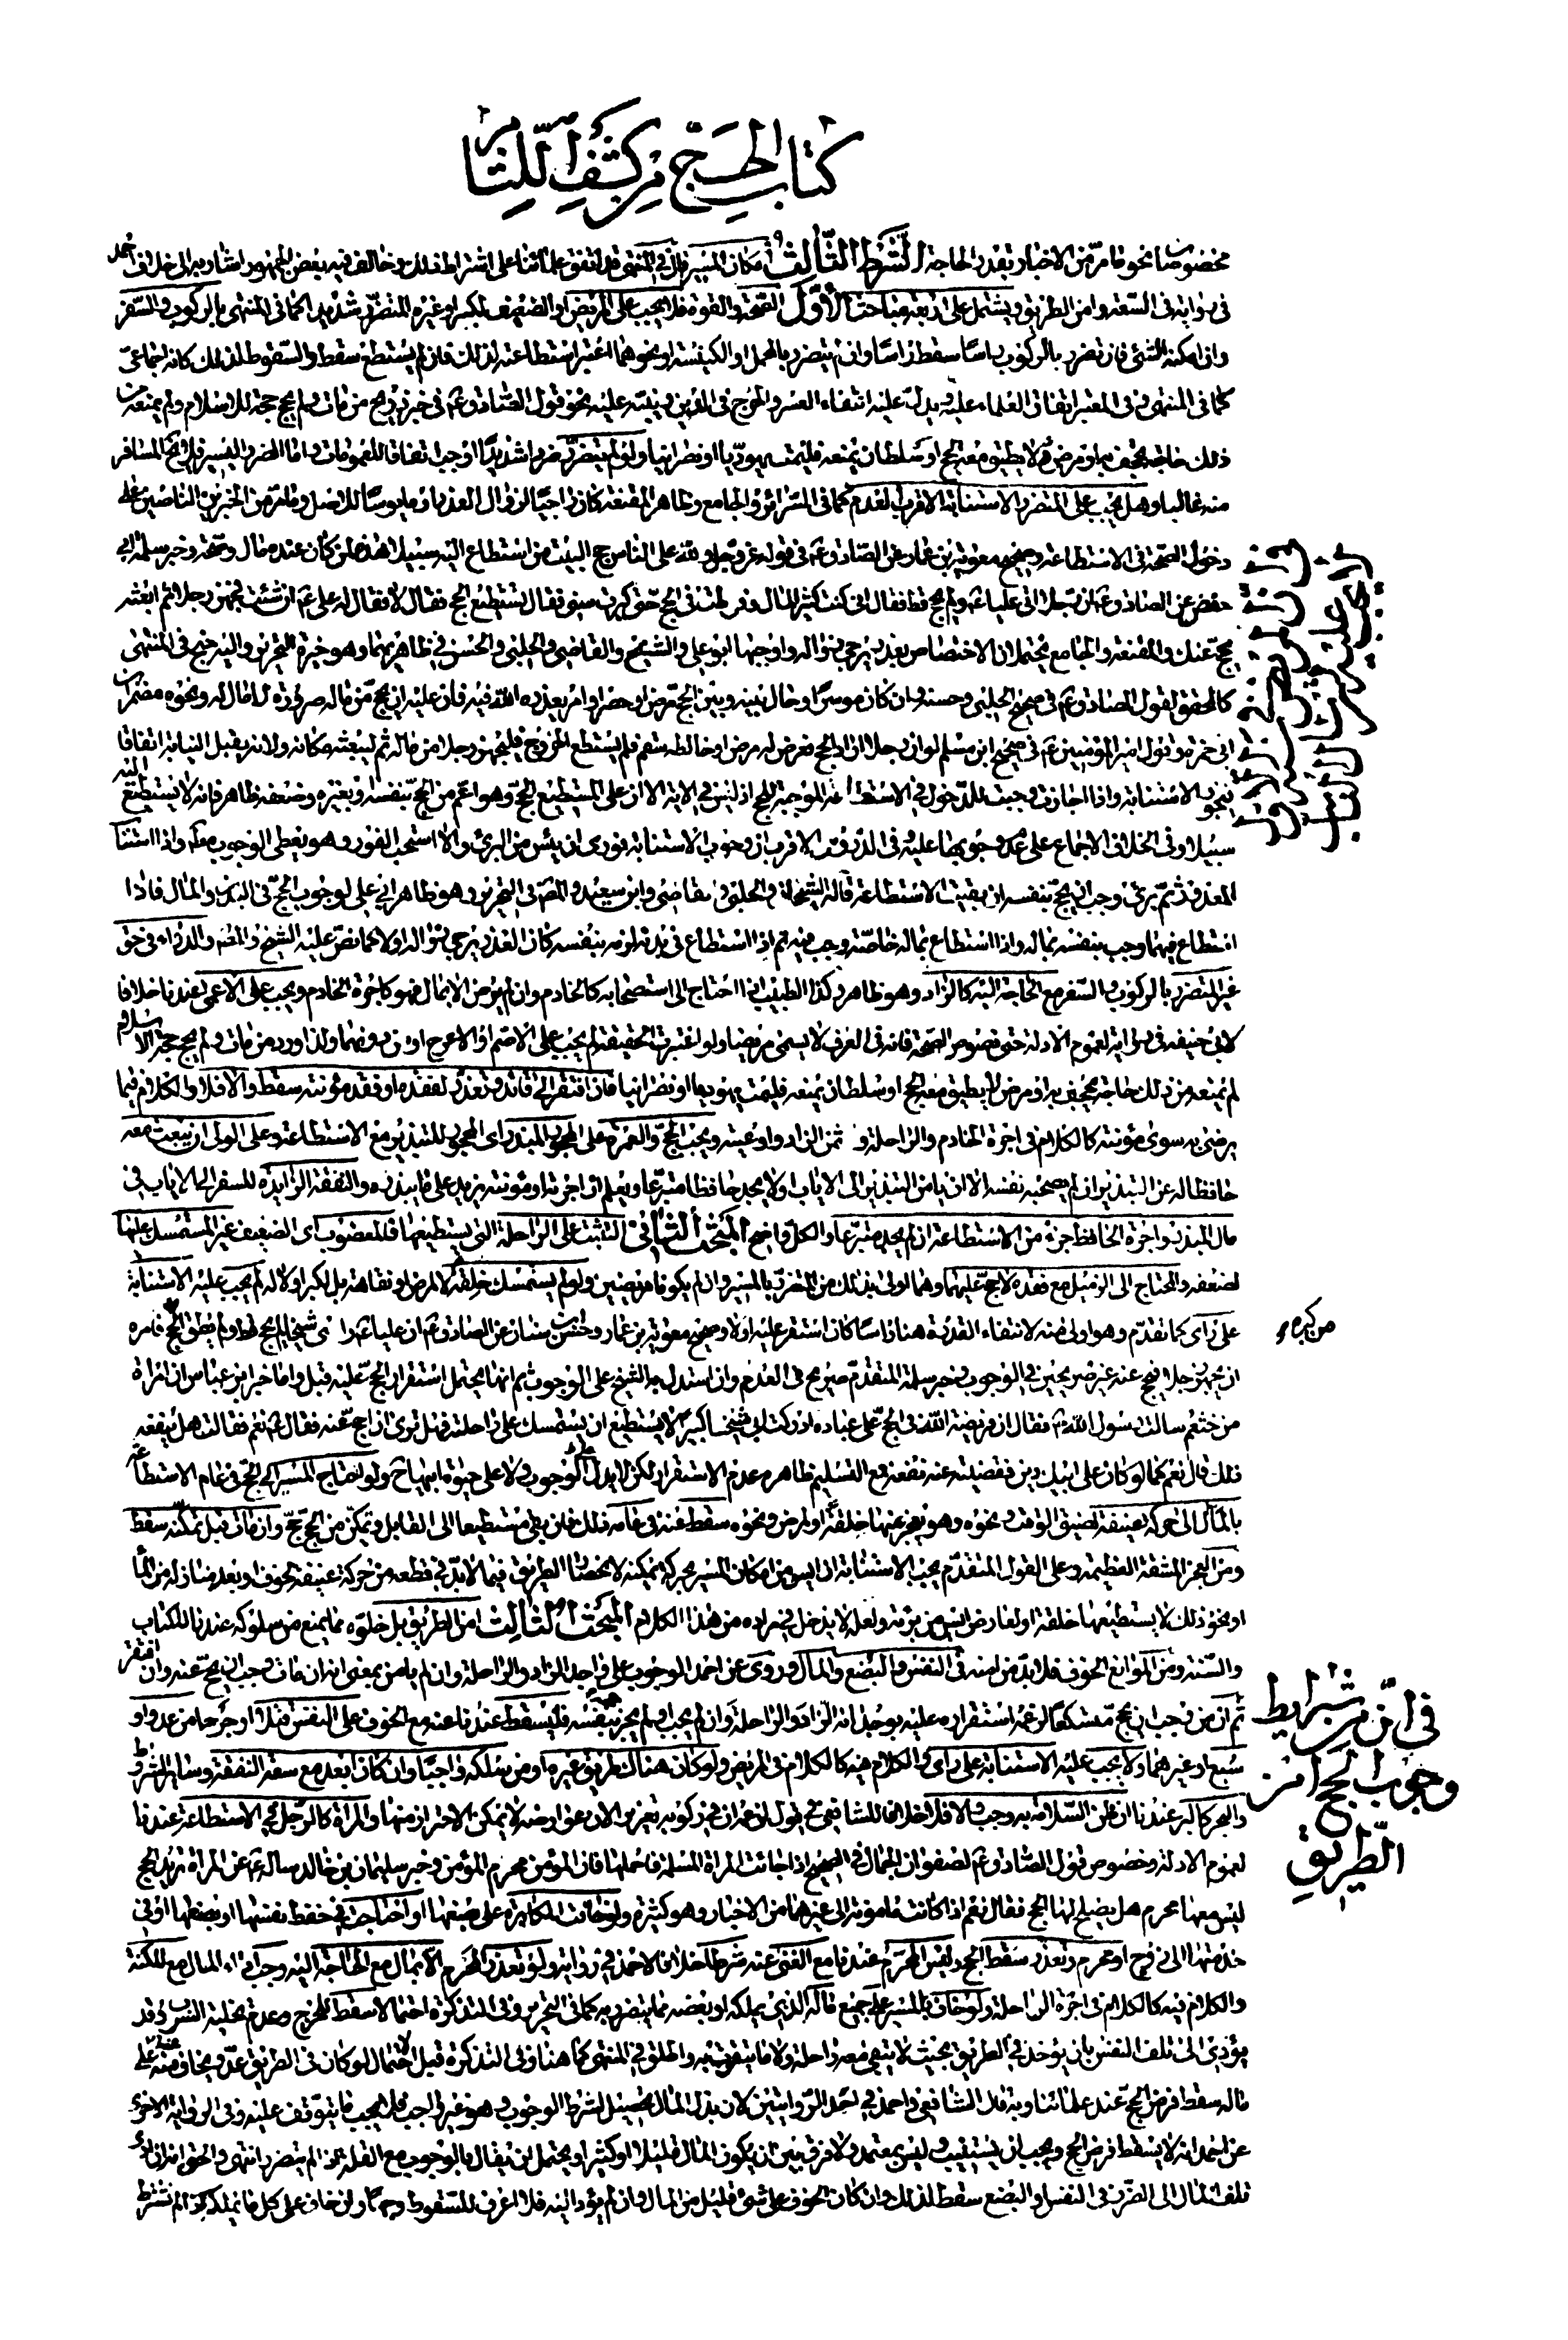 كتاب الحج من كشف اللثام
مخصوصا نحو ما مر من الاخبار بقدر الحاجة الشرط الثالث امكان المسير قال في المنتهى قد اتفق علمائنا على اشتراط ذلك وخالف فيه بعض الجمهور اشار به الى خلاف احمد
في رواية في السعة وامن الطريق ويشتمل على اربعة مباحث الأول الصحة والقوة فلا يجب على المريض او الضعيف لكبر او غيره المتضرر شديدا كما في المنتهى بالركوب والسفر
وان امكنه الشئ فان تضرر بالركوب راسا سقط راسا وان لم يتضرر بالمحمل او الكنيسة او نحوهما اعتبر استطاعته لذلك فان لم يستطع سقط والسقوط لذلك كانه اجماعي
كما في المنتهى وفى المعتبر اتفاق العلماء عليه ويدل عليه انتفاء العسر والحرج في الدين وينبه عليه نحو قول الصادق ع في خبر ذريح من مات ولم يحج حجة الاسلام ولم يمنعه من
ذلك حاجة يجحف به او مرض لا يطيق معه الحج او سلطان يمنعه فليمت يهوديا او نصرانيا ولو لم يتضرر ضررا شديدا وجب اتفاقا للعمومات واما الضرر اليسير فلا يخ المسافر
منه غالبا وهل يجب على المتضرر الاستنابة الاقرب العدم كما في السرائر والجامع وظاهر المقنعة كان راجيا لزوال العذر او مايوسا للاصل وما مر من الخبرين الناصين على
دخول الصحة في الاستطاعة وصحيح معوية بن عمار عن الصادق ع في قوله عز وجل ولله على الناس حج البيت من استطاع اليه سبيلا هذه لمن كان عنده مال وصحة وخبر سلمة ابى
حفص عن الصادق ع ان رجلا اتى عليا ع ولم يحج قط فقال انى كنت كثير المال وفرطت في الحج حتى كبرت سنى فقال تستطيع الحج فقال لا فقال له على ع ان شئت فجهز رجلا ثم ابعثه
يحج عنك والمقنعة والجامع يحتملان الاختصاص بعذر يرجى زواله واوجبها ابو علي والشيخ والقاضي والحلبي والحسن في ظاهريهما وهو خيرة التحرير واليه جنح في المنتهى
كالمحقق لقول الصادق ع في صحيح الحلبي وحسنه وان كان موسرا وحال بينه وبين الحج مرض او حصر او امر يعذره الله فيه فان عليه ان يحج من ماله صرورة لا مال له ونحوه مضمر ابن
ابى حمزة وقول امير المؤمنين ع في صحيح ابن مسلم لو ان رجلا اراد الحج فعرض له مرض او خالطه سقم فلم يستطع الخروج فليجهز رجلا من ماله ثم ليبعثه مكانه ولانه يقبل النيابة اتفاقا
فيجوز الاستنابة واذا جازت وجبت للدخول في الاستطاعة الموجبة للحج اذ ليس في الاية الا ان على المستطيع الحج وهو اعم من الحج بنفسه او بغيره وضعفه ظاهر فانه لا يستطيع اليه
سبيلا وفى الخلاف الاجماع على عدم وجوبها عليه وفى الدروس الاقرب ان وجوب الاستنابة فورى ان يئس من البرئ والا استحب الفور وهو يعطى الوجوب معه واذا استناب
المعذور ثم برئ وجب ان يحج بنفسه ان بقيت الاستطاعة قاله الشيخان والحلبي والقاضي وابن سعيد والمص في التحرير وهو ظاهر اي على لوجوب الحج في البدن والمال فاذا
استطاع فيهما وجب بنفسه بماله واذا استطاع بماله خاصة وجب فيه ثم اذا استطاع في بدنه لزمه بنفسه كان العذر يرجى زواله او لا كما نص عليه الشيخ والمص والدواء في حق
غير المتضرر بالركوب والسفر مع الحاجة اليه كالزاد وهو ظاهر وكذا الطبيب ان احتاج الى استصحابه كالخادم وان لم يرض الا بمال فهو كاجرة الخادم ويجب على الاعمى عندنا خلافا
لابى حنيفة في رواية لعموم الادلة حتى نصوص الصحة فانه في العرف لا يسمى مريضا ولو اعتبرت الحقيقة لم يجب على الاصم او الاعرج او من دونهما ولذا ورد من مات ولم يحج حجة الاسلام
لم يمنعه من ذلك حاجة يجحف به او مرض لا يطيق معه الحج او سلطان يمنعه فليمت يهوديا او نصرانيا فان افتقر الى قائد وتعذر لفقده او فقد مؤنته سقط والا فلا والكلام فيما
يرضى به سوى مؤنته كالكلام في اجرة الخادم والراحلة وثمن الزاد واوعيته ويجب الحج والعمرة على المحجور المبذر اي المحجور للتبذير مع الاستطاعة وعلى الولى ان يبعث معه
حافظا له عن التبذير ان لم يصحبه نفسه الا ان يامن التبذير الى الاياب او لا يجد حافظا متبرعا ويعلم ان اجرته او مؤنته يزيد على ما يبذره والنفقة الزايدة للسفر الى الاياب في
مال المبذر واجرة الحافظ جزء من الاستطاعة ان لم يجد متبرعا والكل واضح المبحث الثاني التثبت على الراحلة التي يستطيعها فالمعضوب اى الضعيف غير المستمسك عليها
لضعفه والمحتاج الى الزميل مع فقده لا حج عليهما وهما اولى بذلك من المتضرر بالمسير وان لم يكونا مريضين ولو لم يستمسك خلقة لا لمرض او نقاهة بل لكبر او لا له لم يجب عليه الاستنابة
على راى كما تقدم وهو اولى منه لانتفاء القدرة هنا راسا كان استقر عليه او لا وصحيح معوية بن عمار وحسن ابن سنان عن الصادق ع ان عليا ع راى شيخا لم يحج قط ولم يطق الحج فامره
من كبره
ان يجهز رجلا فيحج عنه غير صريحين في الوجوب وخبر سلمة المتقدم صريح في العدم وان استدل به الشيخ على الوجوب ثم انها يحتمل استقرار الحج عليه قبل واما خبر ابن عباس ان امراة
من خثعم سالت رسول الله ص فقال ان فريضة الله في الحج على عباده ادركت ابى شيخا كبيرا لا يستطيع ان يستمسك على راحلته فهل ترى ان احج عنه فقال ص نعم فقالت هل ينفعه
ذلك قال نعم كما لو كان على ابيك دين فقضيته عنه نفعه فمع التسليم ظاهره عدم الاستقرار لكن لا يدل على الوجوب ولا على حيوة ابيها ح ولو احتاج المسير الى الحج في عام الاستطاعة
بالمال الى حركة عنيفة لضيق الوقت ونحوه وهو يعجز عنها خلقة او لمرض ونحوه سقط عنه في عامه ذلك فان بقى مستطيعا الى القابل وتمكن من الحج حج وان مات قبل تمكنه سقط
ومن العجز المشقة العظيمة وعلى القول المتقدم يجب الاستنابة ان ايس من امكان المسير بحركة يمكنه لانحصار الطريق فيما لا بد في قطعه من حركة عنيفة لخوف او بعد منازله من الماء
او نحو ذلك لا يستطيعها خلقة او لعارض ايس من برئه ولعله لا يدخل في مراده من هذا الكلام المبحث الثالث امن الطريق بل خلوه مما يمنع من سلوكه عندنا للكتاب
والسنة ومن الموانع الخوف فلا بد من امنه في النفس والبضع والمال وروى عن احمد الوجوب على واجد الزاد والراحلة وان لم يامن بمعنى انه ان مات وجب ان يحج عنه وان افتقر
ثم ان من وجب ان يحج متسكعا لزعمه استقراره عليه بوجدانه الزاد والراحلة وان لم يجب او لم يجز بنفسه فليسقط عندنا عنه مع الخوف على النفس قتلا او جرحا من عدو او
في ان من شرايط وجوب الحج امن الطريق
سبع او غيرهما ولا يجب عليه الاستنابة على راى والكلام فيه كالكلام في المريض ولو كان هناك طريق غيره امن سلكه واجبا وان كان ابعد مع سعة النفقة وساير الشروط
والبحر كالبر عندنا ان ظن السلامة به وجب والا فلا خلافا للشافعي في قول لزعمه ان في ركوبه تغريرا لان عوارضه لا يمكن الاحتراز منها والمراة كالرجل في الاستطاعة عندنا
لعموم الادلة وخصوص قول الصادق ع لصفوان الجمال في الصحيح اذا جائت المراة المسلمة فاحملها فان المؤمن محرم المؤمن وخبر سليمان بن خالد ساله ع عن المراة تريد الحج
ليس معها محرم هل يصلح لها الحج فقال نعم اذا كانت مامونة الى غيرهما من الاخبار وهو كثيرة ولو خافت المكابرة على بضعها او احتاجت في حفظ نفسها او بضعها او في
خدمتها الى زوج او محرم وتعذر سقط الحج وليس المحرم عندنا مع الغنى عنه شرطا خلافا لاحمد في رواية ولو تعذر المحرم الا بمال مع الحاجة اليه وجب اداء المال مع المكنة
والكلام فيه كالكلام في اجرة الراحلة ولو خاف بالمسير على جميع ماله الذي يملكه او بعضه مما يتضرر به كما في التحرير وفى التذكرة احتمالا سقط للحرج وعدم تخلية السرب وقد
يؤدى الى تلف النفس بان يؤخذ في الطريق بحيث لا يبقى معه راحلة ولا ما يتقوت به واطلق في المنتهى كما هنا وفى التذكرة قبل الاحتمال لو كان في الطريق عدو يخاف منه على
ماله سقط فرض الحج عند علمائنا وبه قال الشافعي واحمد في احدى الروايتين لان بذل المال تحصيل لشرط الوجوب وهو غير واجب فلا يجب ما يتوقف عليه وفى الرواية الاخرى
عن احمد انه لا يسقط فرض الحج ويجب ان يستنيب وليس بمعتمد ولا فرق بين ان يكون المال قليلا او كثيرا ويحتمل ان يقال بالوجوب مع القلة اذا لم يتضرر انتهى والحق انه ان ادى
تلف المال الى الضرر في النفس او البضع سقط لذلك وان كان الخوف على شئ قليل من المال وان لم يؤد اليه فلا اعرف للسقوط وجها وان خاف على كل ما يملكه اذا لم نشترط